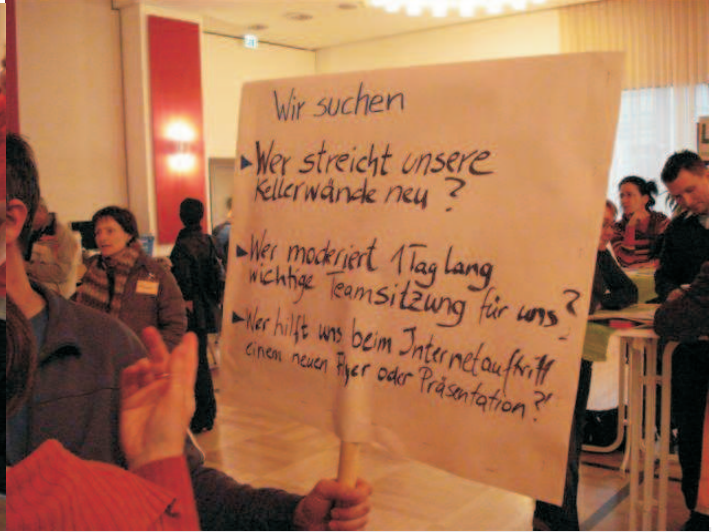 Wir suchen
Wer streicht unsere
Kellerwände neu?
Wer moderiert 1 Tag lang
wichtige Teamsitzung für uns?
Wer hilft uns beim Internetauftritt
einem neuen Flyer oder Präsentation?